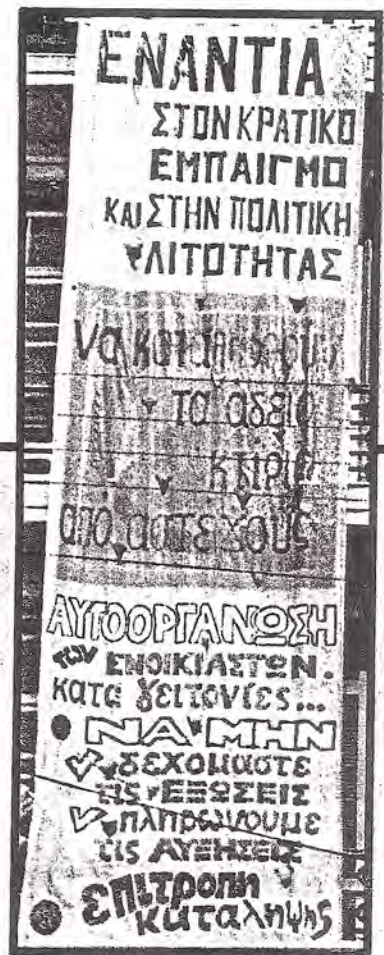 ΕΝΑΝΤΙΑ
ΣΤΟΝ ΚΡΑΤΙΚΟ
ΕΜΠΑΙΓΜΟ
ΚΑΙ ΣΤΗΝ ΠΟΛΙΤΙΚΗ
ΛΙΤΟΤΗΤΑΣ
Να καταληφθούν
τα αδεια
κτιρια
απο αστεγους
ΑΥΤΟΟΡΓΑΝΩΣΗ
των ΕΝΟΙΚΙΑΣΤΩΝ.
κατα γειτονίες...
ΝΑ ΜΗΝ
δεχομαστε
τις ΕΞΩΣΕΙΣ
πληρωνουμε
τις ΑΥΞΗΣΕΙΣ
επιτροπη
καταληψης